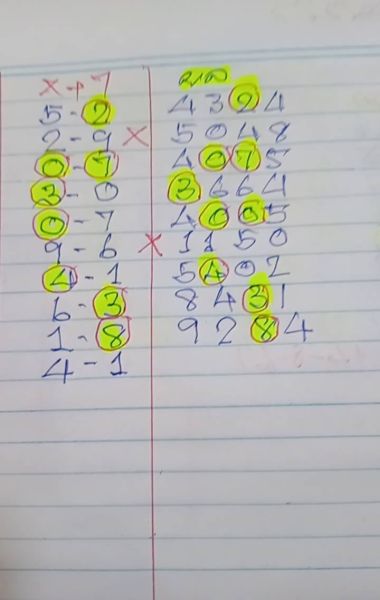 x + 7
5 - 2 4 3 2 4
2 - 9 x 5 0 4 8
0 - 7 4 0 7 5
3 - 0 3 6 6 4
0 - 7 4 0 0 5
9 - 6 x 1 1 5 0
4 - 1 5 4 0 2
6 - 3 8 4 3 1
1 - 8 9 2 8 4
4 - 1